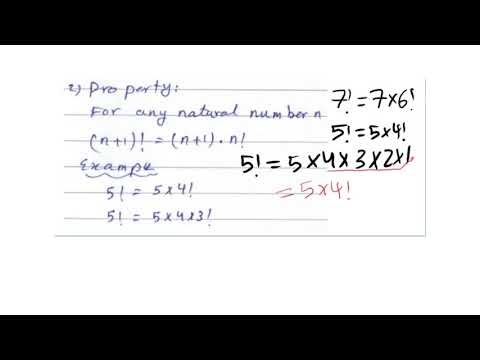 2) Property:
For any natural number n
(n+1)! = (n+1) . n!
Example
5! = 5x4!
5! = 5x4x3!
7! = 7x6!
5! = 5x4!
5! = 5x4x3x2x1
= 5x4!